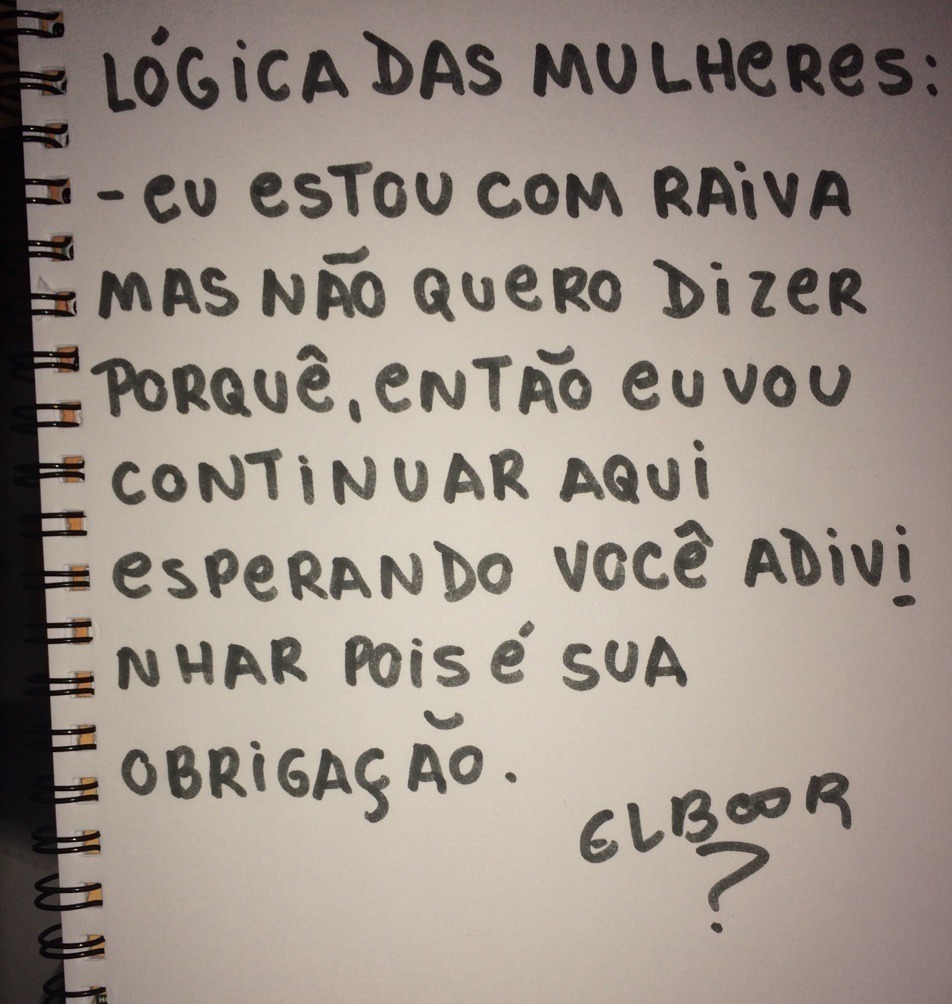 LÓGICA DAS MULHERES:
- EU ESTOU COM RAIVA
MAS NÃO QUERO DIZER
PORQUÊ, ENTÃO EU VOU
CONTINUAR AQUI
ESPERANDO VOCÊ ADIVI
NHAR POIS É SUA
OBRIGAÇÃO.
ELBOOR
?